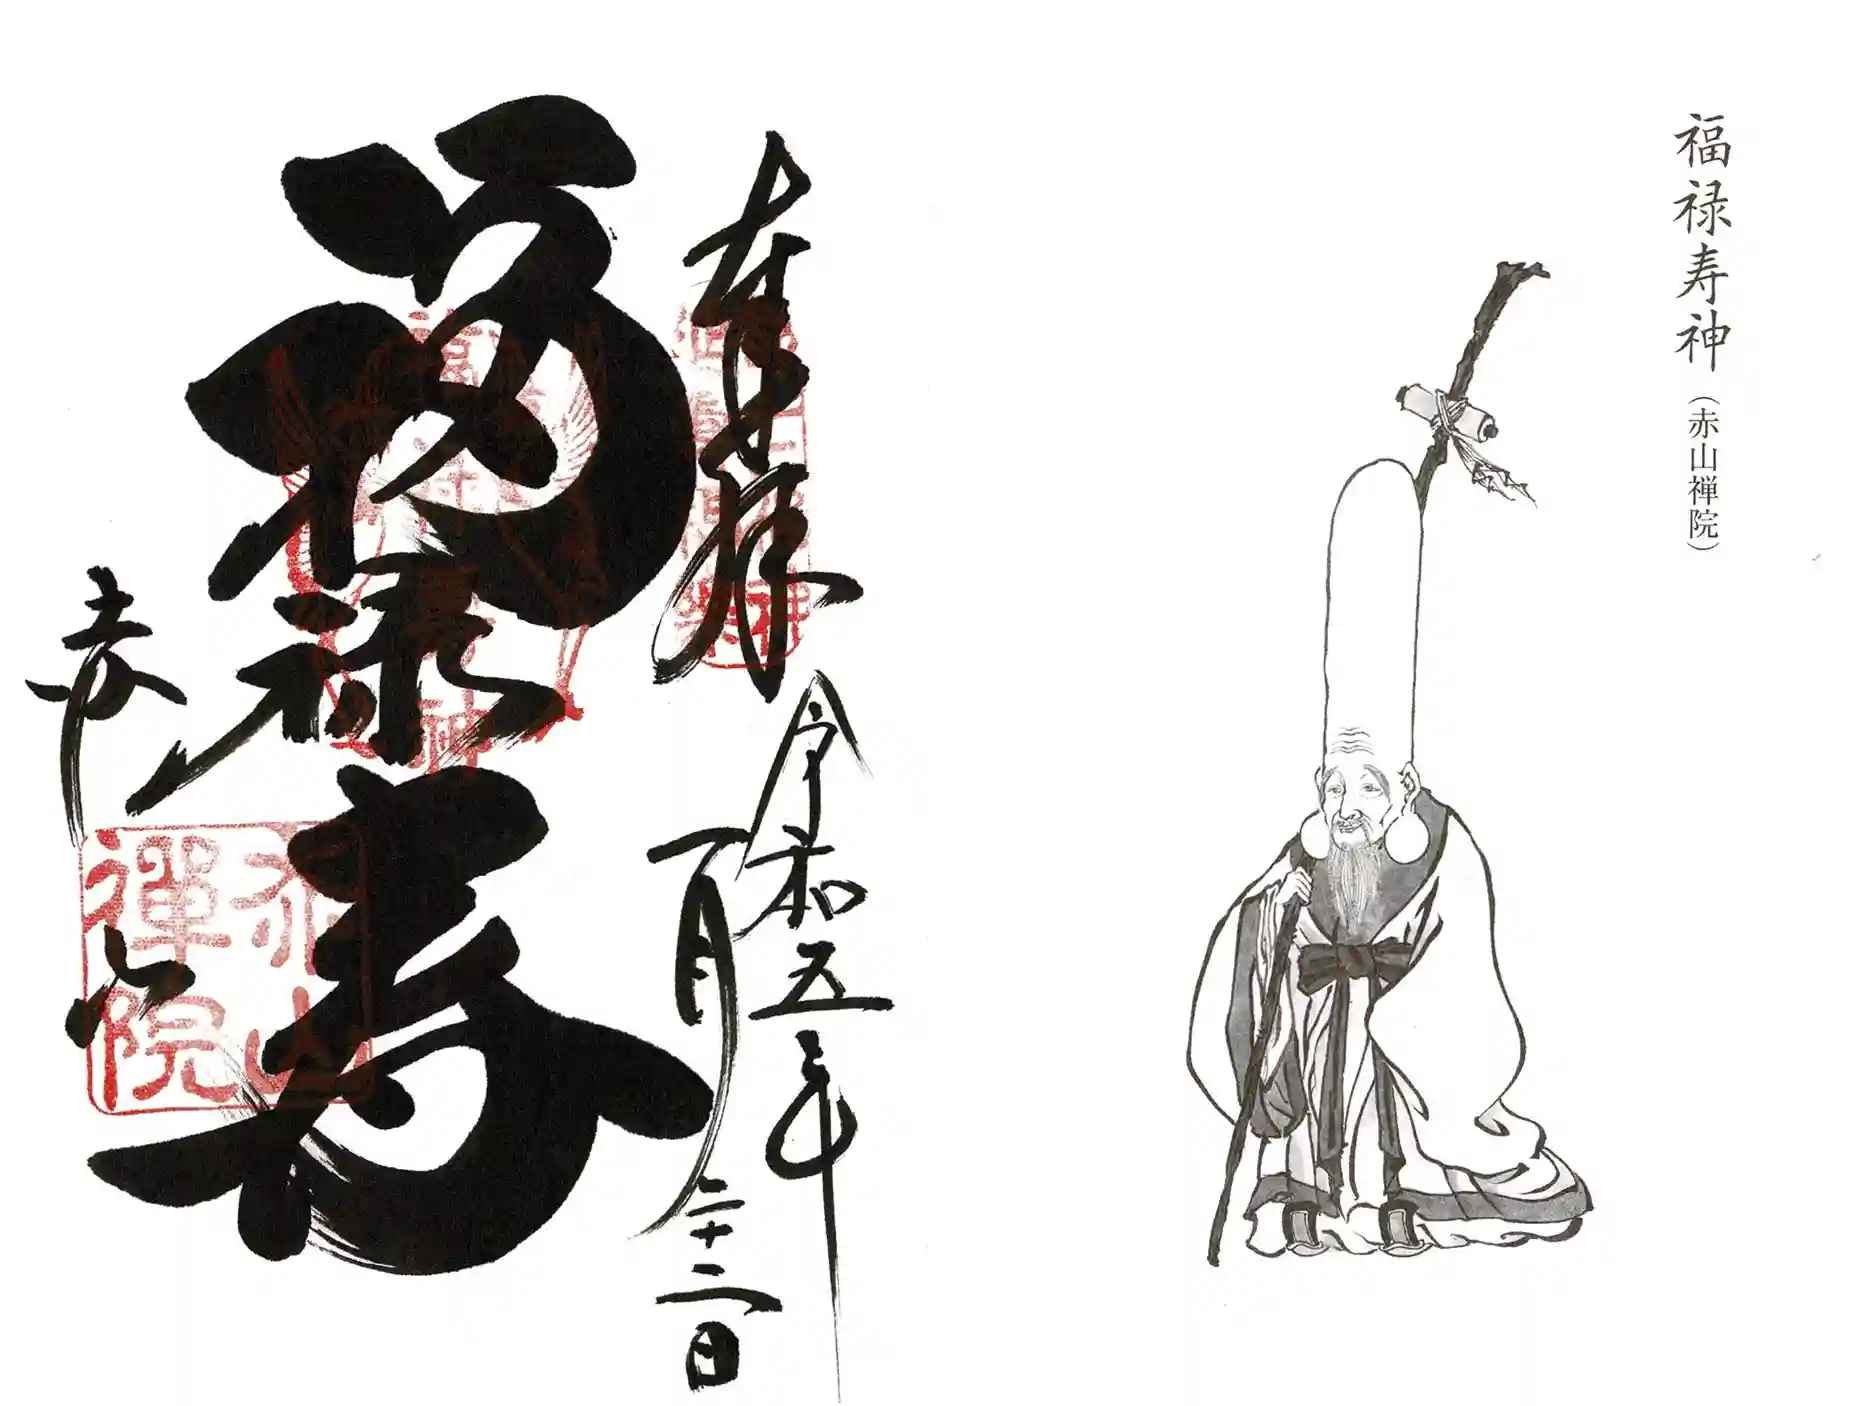 福禄寿神(赤山禅院)
奉拝
令和五年
一月二十二日
福禄寿
赤山
赤山
禪院